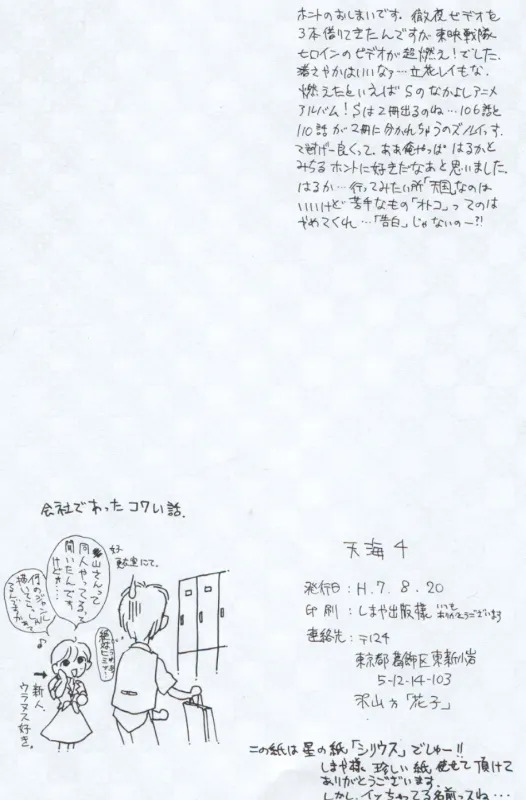 ホントのおしまいです。徹夜でビデオを
3本借りてきたんですが 東映戦隊
ヒロインのビデオが超燃え!でした.
さやかはいいなァ…立花レイもな.
燃えたといえばSのなかよしアニメ
アルバム!Sは2冊出るのね…106話と
110話が2冊に分かれちゃうのズルイっす.
良くって. ああ俺やっぱ はるかと
みちる ホントに好きだなあと思いました.
はるか…行ってみたい所「天国」なのは
いいけど 苦手なもの「オトコ」ってのは
やめてくれ…「告白」じゃないのー?!
会社であったコワい話.
山さんって
同人やってるって
聞いたんです
けどォ……
何のジャンルで
描いてらっしゃ
るんですかァ
♪
駐車室にて.
絶対ヒミツ
新人.
ウラヌス好き.
天海 4
発行日:H.7.8.20
印刷:しまや出版様 いつも
ありがとうございます
連絡先:〒124
東京都葛飾区東新小岩
5-12-14-103
沢山方「花子」
この紙は星の紙「シリウス」でしゅー!!
しまや様 珍しい紙 使わせて頂けて
ありがとうございます.
しかし、イッちゃってる名前ってね…